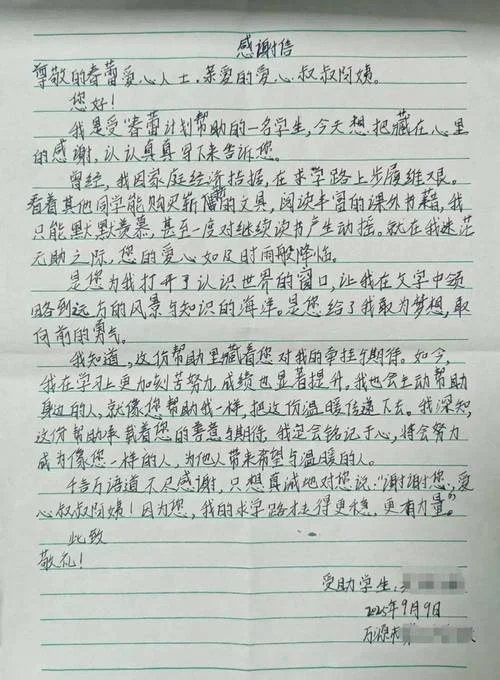 感谢信
尊敬的春蕾爱心人士、亲爱的爱心叔叔阿姨。
您好！
我是受“春蕾计划帮助的一名学生，今天想把藏在心里
的感谢，认认真真写下来告诉您。
曾经，我因家庭经济拮据，在求学路上步履维艰。
看着其他同学能购买崭新的文具，阅读丰富的课外书籍，我
只能默默羡慕，甚至一度对继续读书产生动摇。就在我迷茫
无助之际，您的爱心如及时雨般降临。
是您为我打开了认识世界的窗口，让我在文字中领
略到远方的风景与知识的海洋。是您给了我敢为梦想，敢
向前的勇气。
我知道，这份帮助里藏着您对我的牵挂与期待。如今，
我在学习上更加刻苦努力，成绩也显著提升。我也会主动帮助
身边的人，就像您帮助我一样，把这份温暖传递下去。我深知，
这份帮助承载着您的善意与期待，我定会铭记于心，将会努力
成为像您一样的人，为他人带来希望与温暖的人。
千言万语道不尽感谢，只想真诚地对您说：“谢谢您，爱
心叔叔阿姨！因为您，我的求学路才走得更稳，更有力量。”
此致
敬礼！
受助学生：
2025年9月9日
万源市